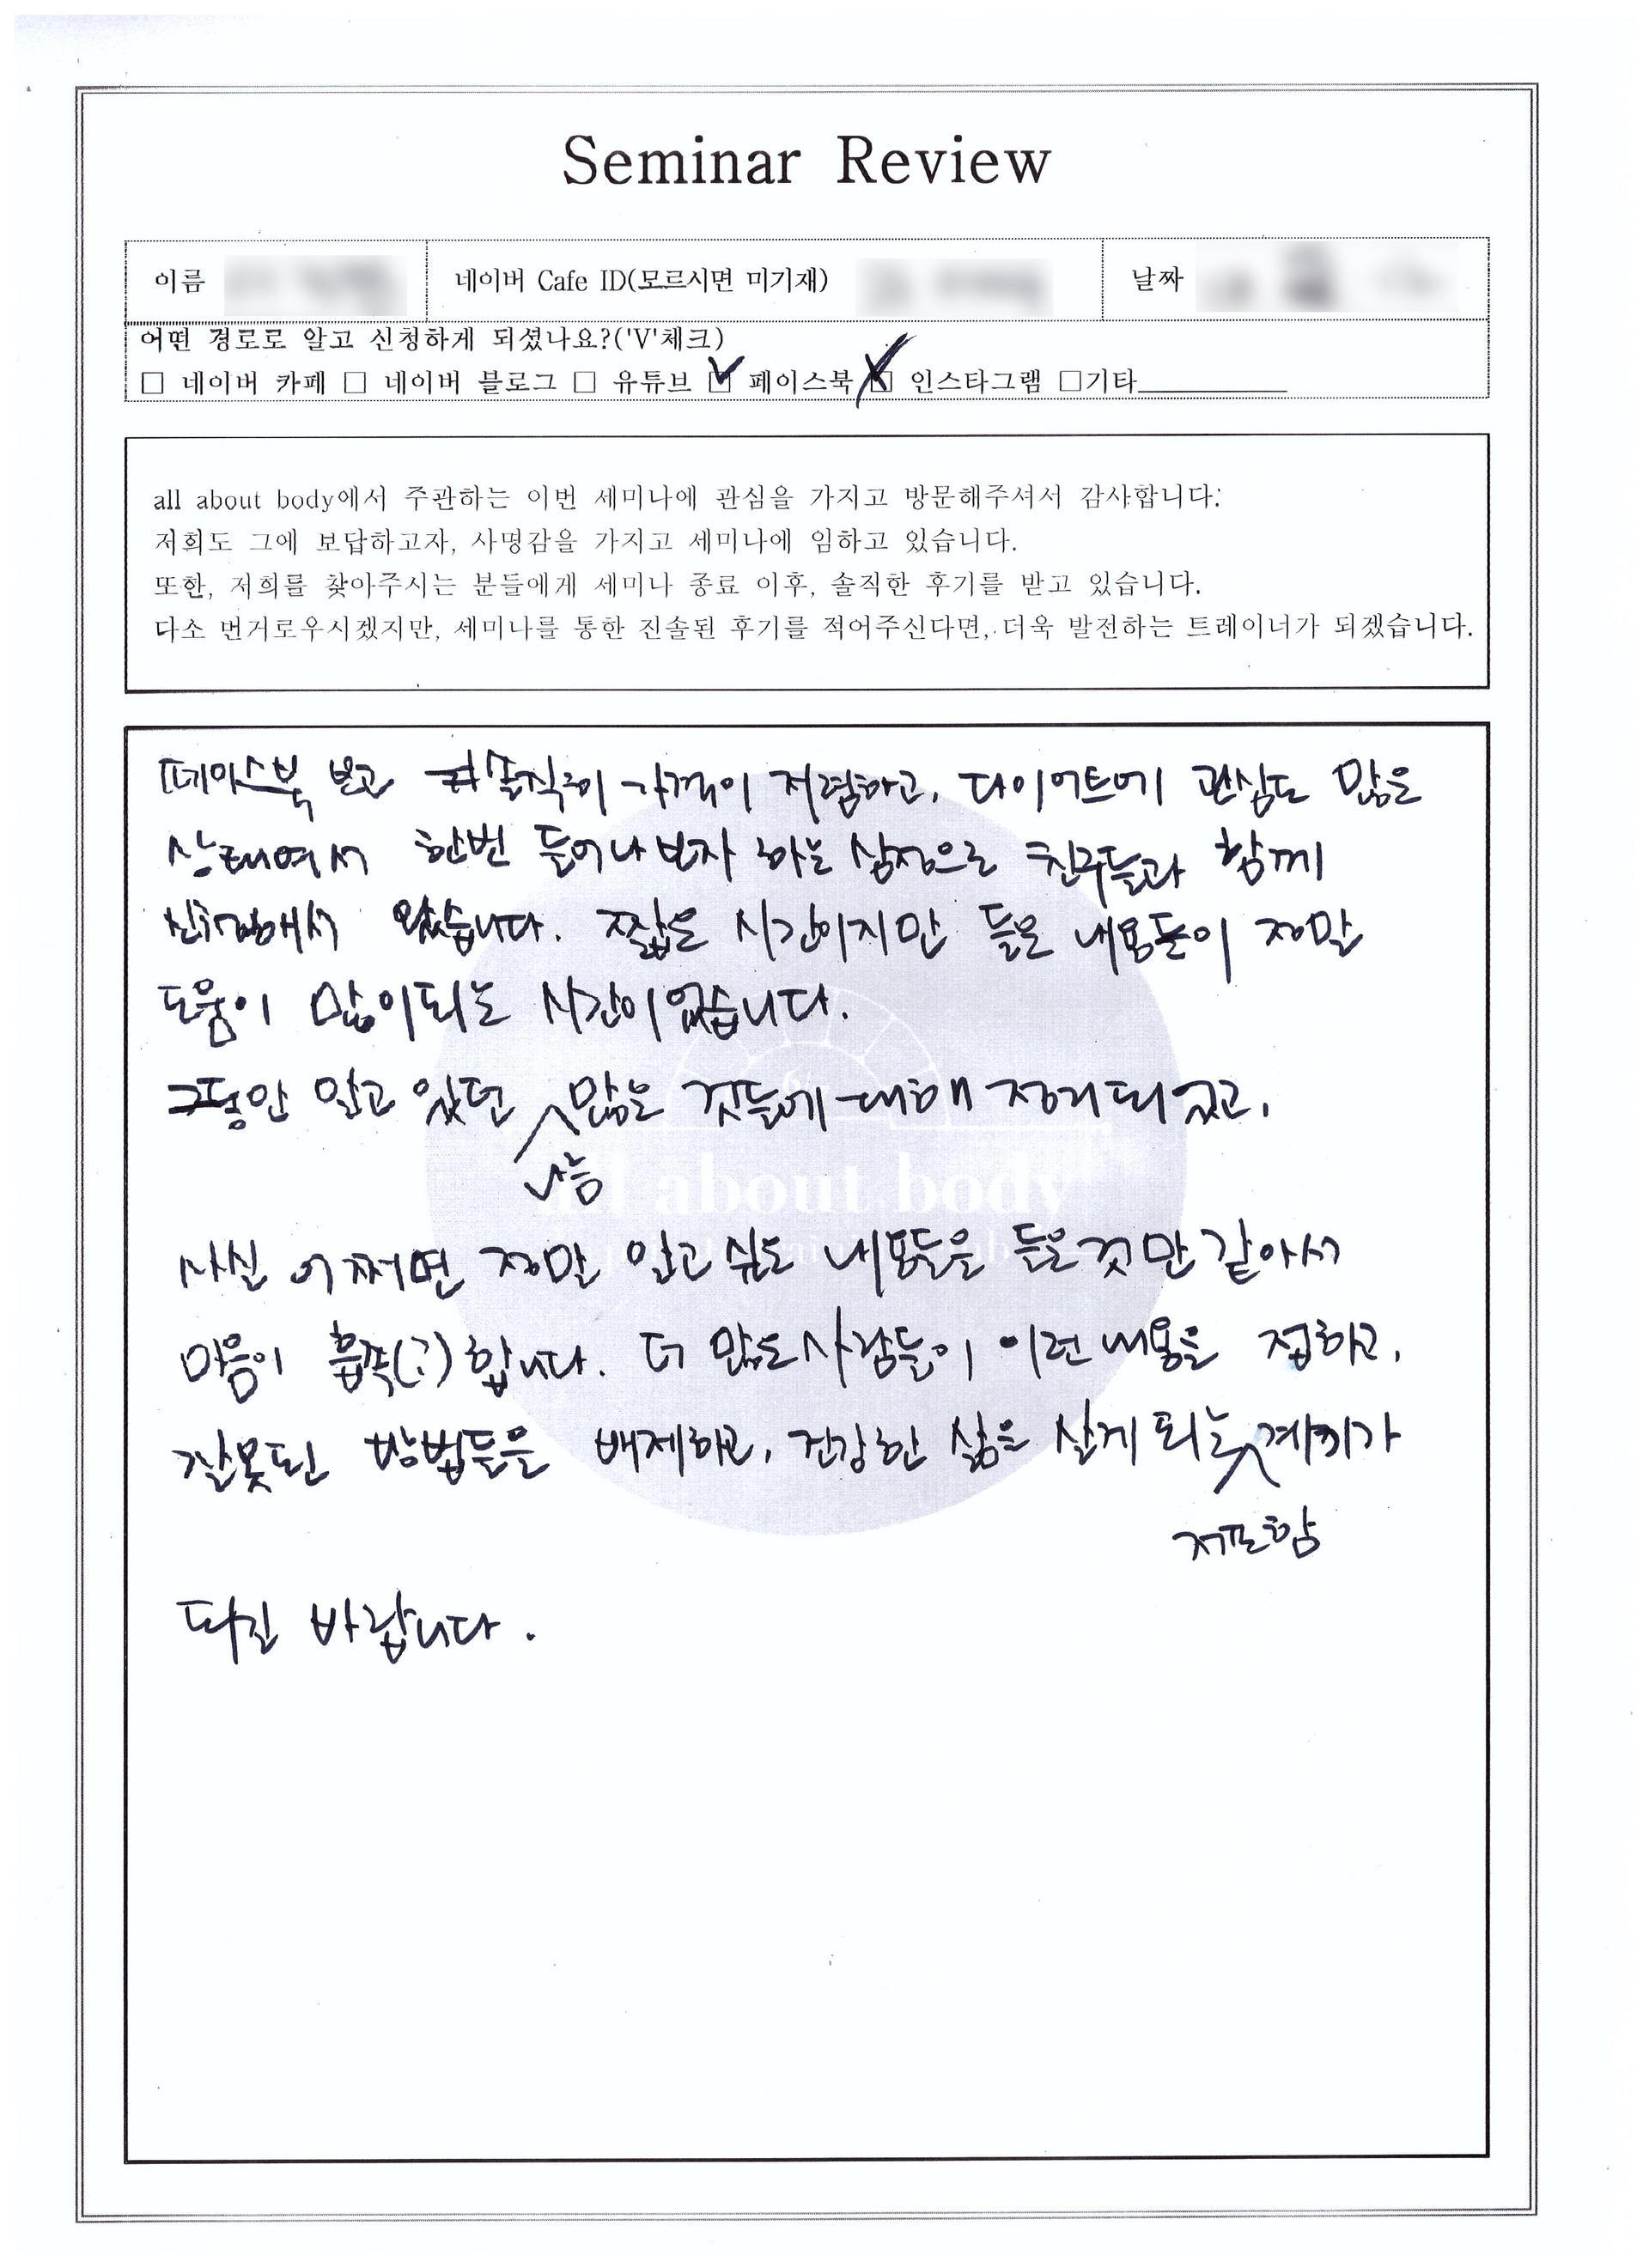 Seminar Review
이름 네이버 Cafe ID(모르시면 미기재) 날짜
어떤 경로로 알고 신청하게 되셨나요?('V'체크)
☐ 네이버 카페 ☐ 네이버 블로그 ☐ 유튜브 ☑ 페이스북 ☑ 인스타그램 ☐기타
all about body에서 주관하는 이번 세미나에 관심을 가지고 방문해주셔서 감사합니다.
저희도 그에 보답하고자, 사명감을 가지고 세미나에 임하고 있습니다.
또한, 저희를 찾아주시는 분들에게 세미나 종료 이후, 솔직한 후기를 받고 있습니다.
다소 번거로우시겠지만, 세미나를 통한 진솔된 후기를 적어주신다면, 더욱 발전하는 트레이너가 되겠습니다.
페이스북 보고 솔직히 가격이 저렴하고, 다이어트에 관심도 많은
상태여서 한번 들어나보자 하는 심정으로 친구들과 함께
신청해서 왔습니다. 짧은 시간이지만 들은 내용들이 정말
도움이 많이되는 시간이었습니다.
그동안 알고 있던 많은 것들에 대해 정리되었고,
나름
사실 어쩌면 정말 알고 싶은 내용들을 들은것만 같아서
마음이 흡족(?)합니다. 더 많은사람들이 이런내용을 접하고,
잘못된 방법들을 배제하고, 건강한 삶을 살게 되는 계기가
저포함
되길 바랍니다.
all about body